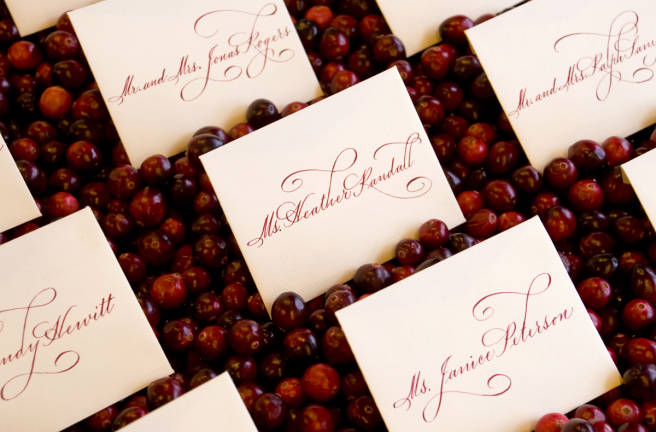 Mr. and Mrs. Jonas Rogers
Mr. and Mrs. Ralph
Ms. Heather Randall
ndy Hewitt
Ms. Janice Peterson